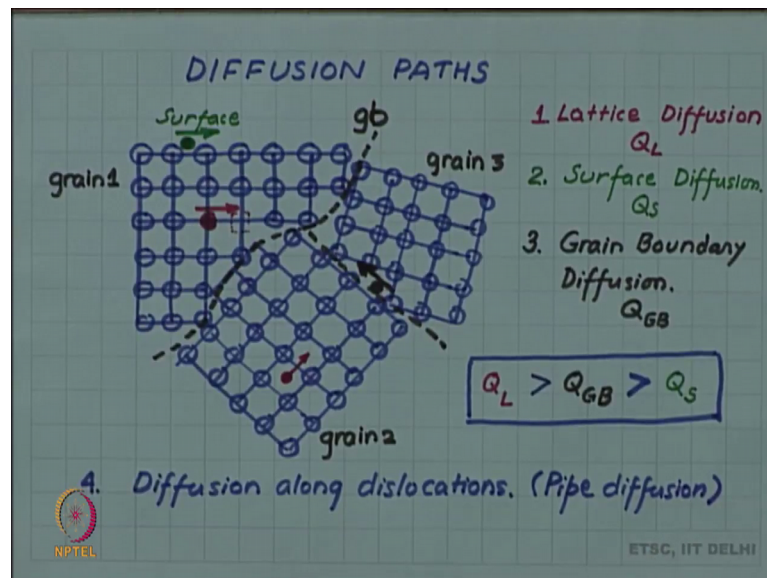 DIFFUSION PATHS
Surface
gb
grain1
grain 3
grain2
1 Lattice Diffusion
Q_L
2. Surface Diffusion.
Q_S
3. Grain Boundary
Diffusion.
Q_GB
Q_L > Q_GB > Q_S
4. Diffusion along dislocations. (Pipe diffusion)
NPTEL
ETSC, IIT DELHI